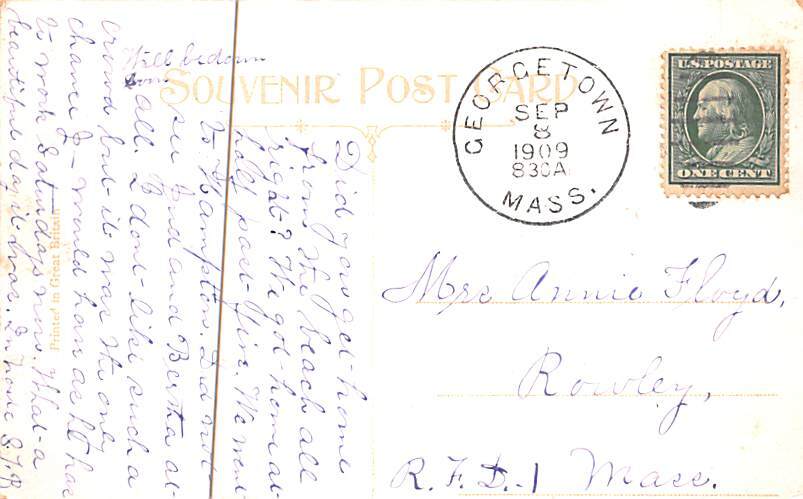 SOUVENIR POST CARD
GEORGETOWN
SEP
8
1909
830A
MASS.
U.S. POSTAGE
ONE CENT
Mrs Annie Floyd,
Rowley,
R.F.D.-1 Mass.
Did you get home
from the beach all
right? We got home at
half past five. We went
to Hampton. Did not
see Ind and Bertha at
all. I dont like such a
crowd but it was the only
chance I would have as H has
to work Saturdays now. What a
beautiful day it was. In haste S.F.R
Will be down
soon
Printed in Great Britain